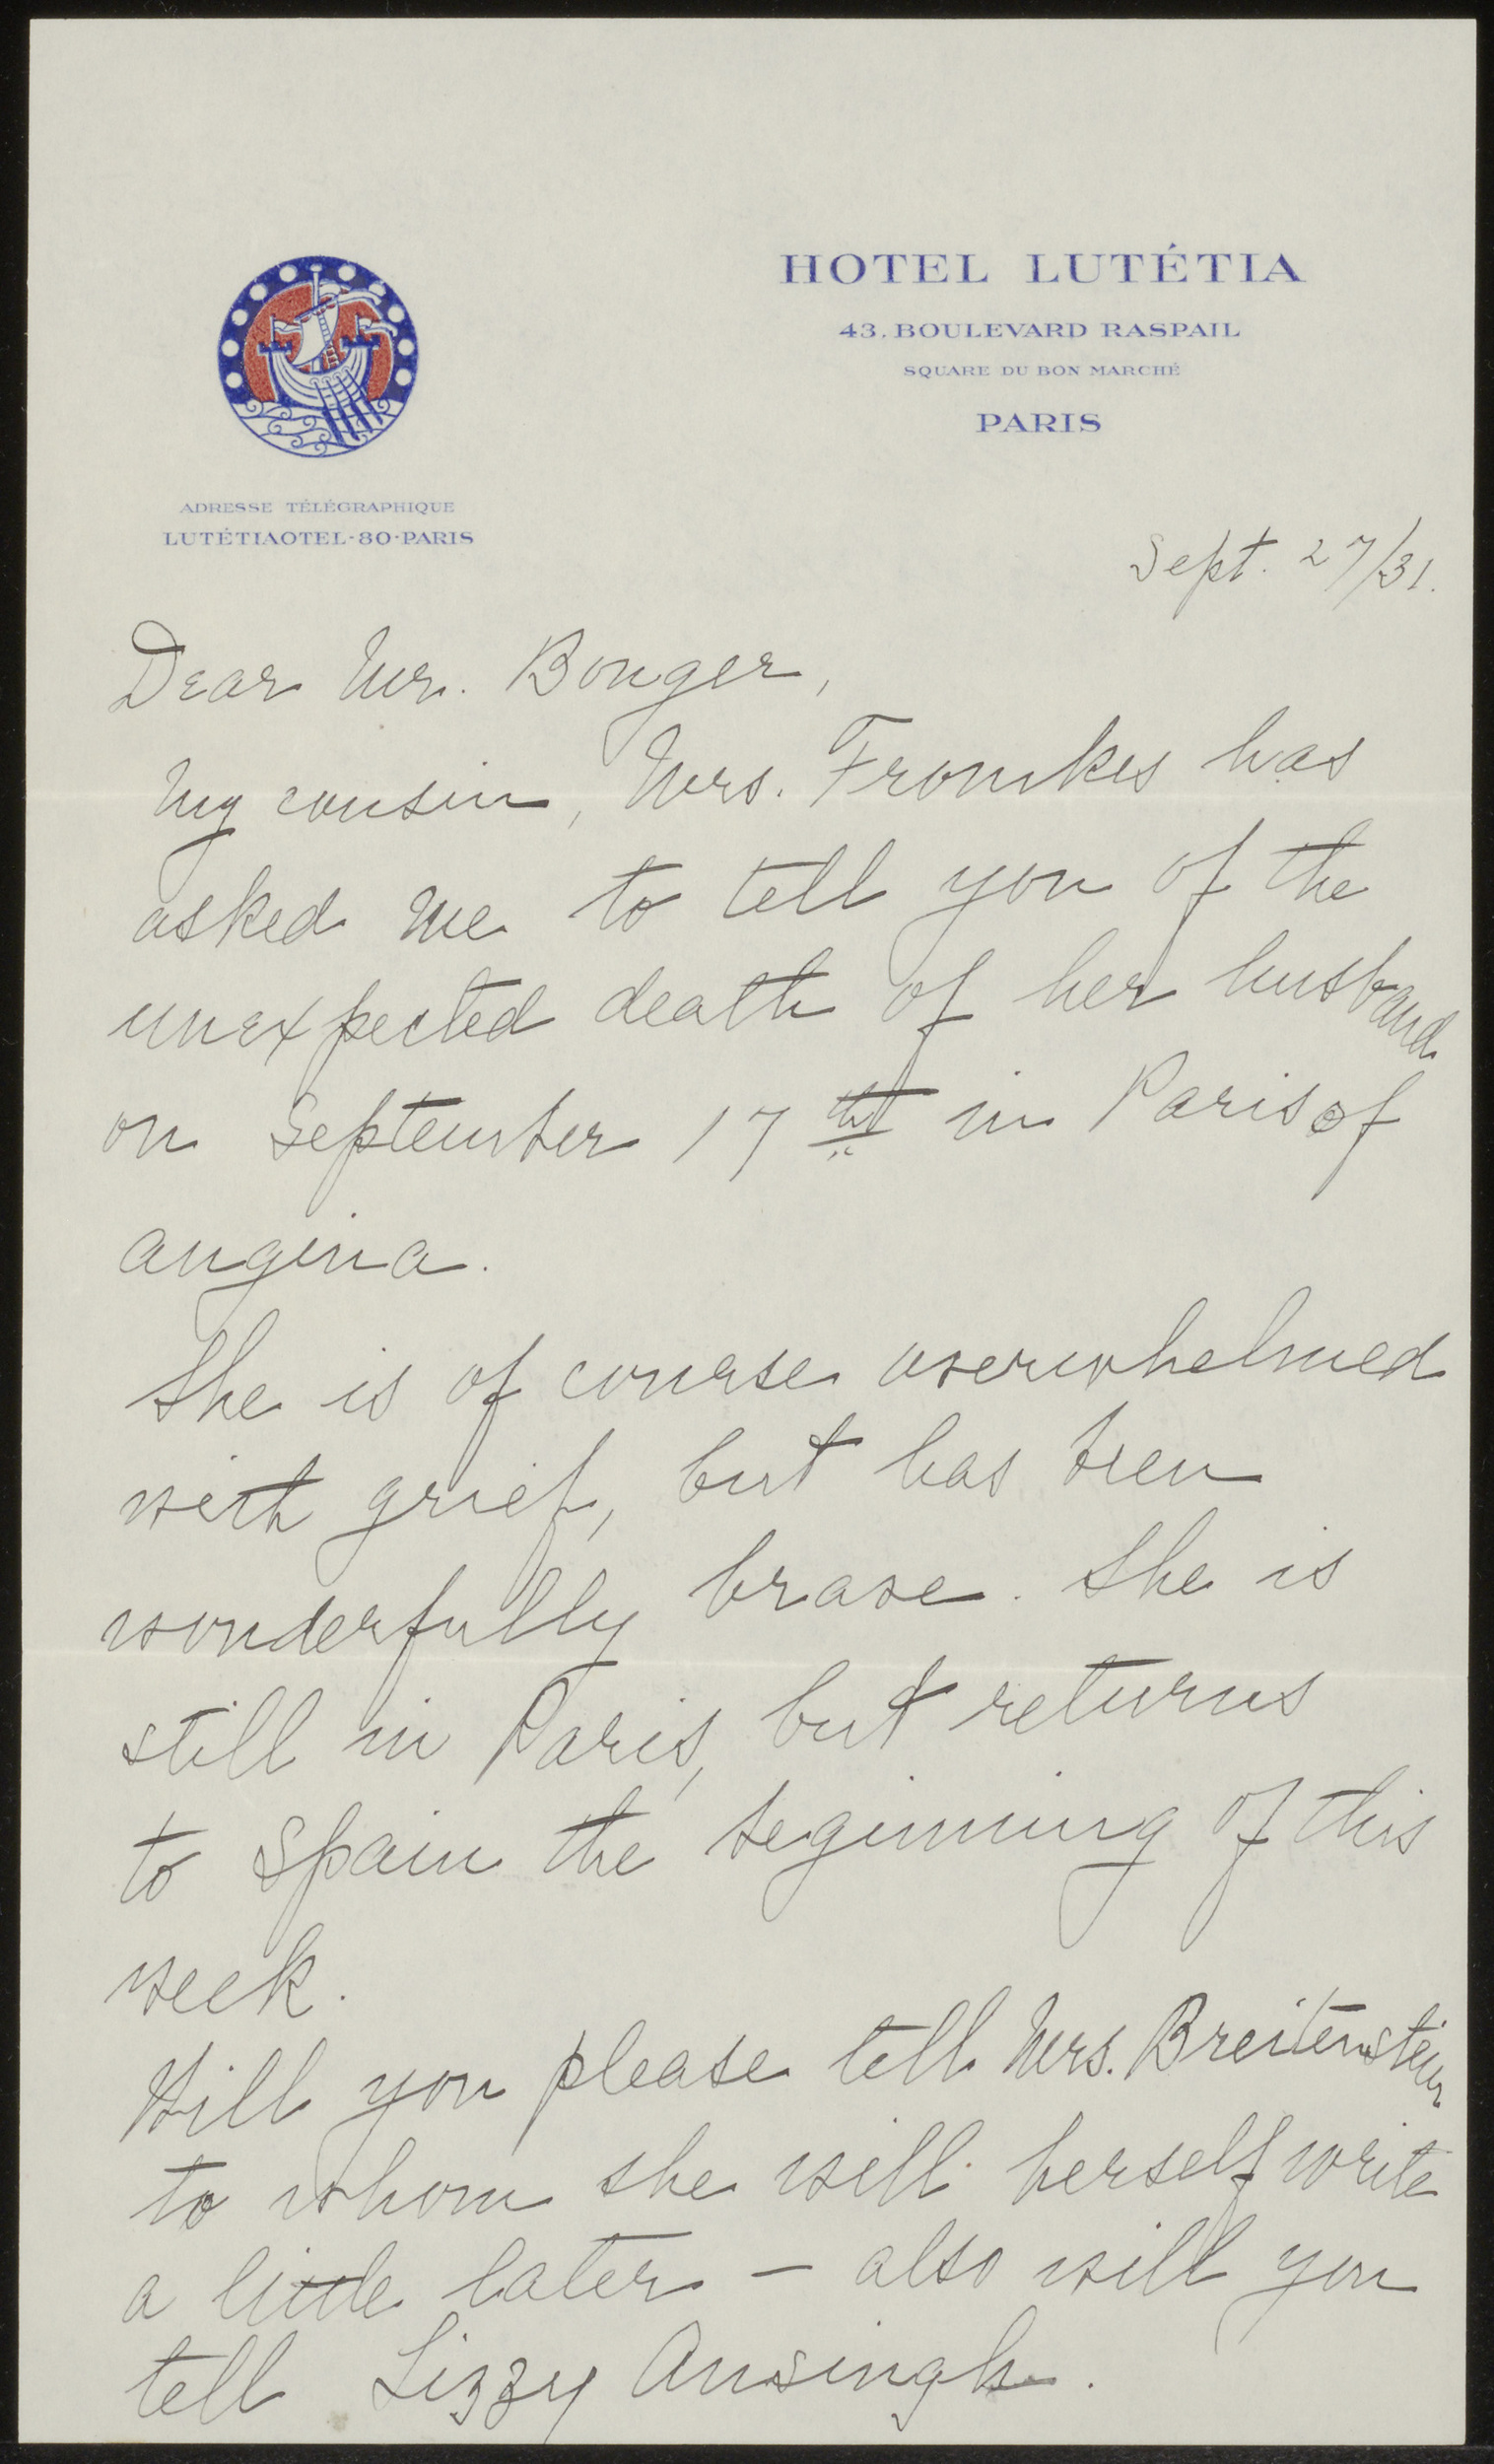 HOTEL LUTÉTIA
43. BOULEVARD RASPAIL
SQUARE DU BON MARCHÉ
PARIS
ADRESSE TÉLÉGRAPHIQUE
LUTÉTIAOTEL-80-PARIS
Sept. 27/31.
Dear Mr. Bonger,
My cousin, Mrs. Fromkes has
asked me to tell you of the
unexpected death of her husband
on September 17th in Paris of
angina.
She is of course overwhelmed
with grief, but has been
wonderfully brave. She is
still in Paris, but returns
to Spain the beginning of this
week.
Will you please tell Mrs. Breitenstein
to whom she will herself write
a little later – also will you
tell Lizzy Ansingh.